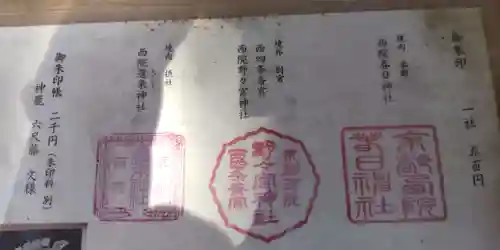 御朱印 一社 五百円
境内 本殿
西院春日神社
京都西院
春日神社
境外 別宮
西四条斎宮
西院野々宮神社
京都西院
野々宮神社
西四条斎宮
境内 摂社
西院還来神社
御朱印帳 二千円(朱印料 別)
神鹿 六尺藤 文様